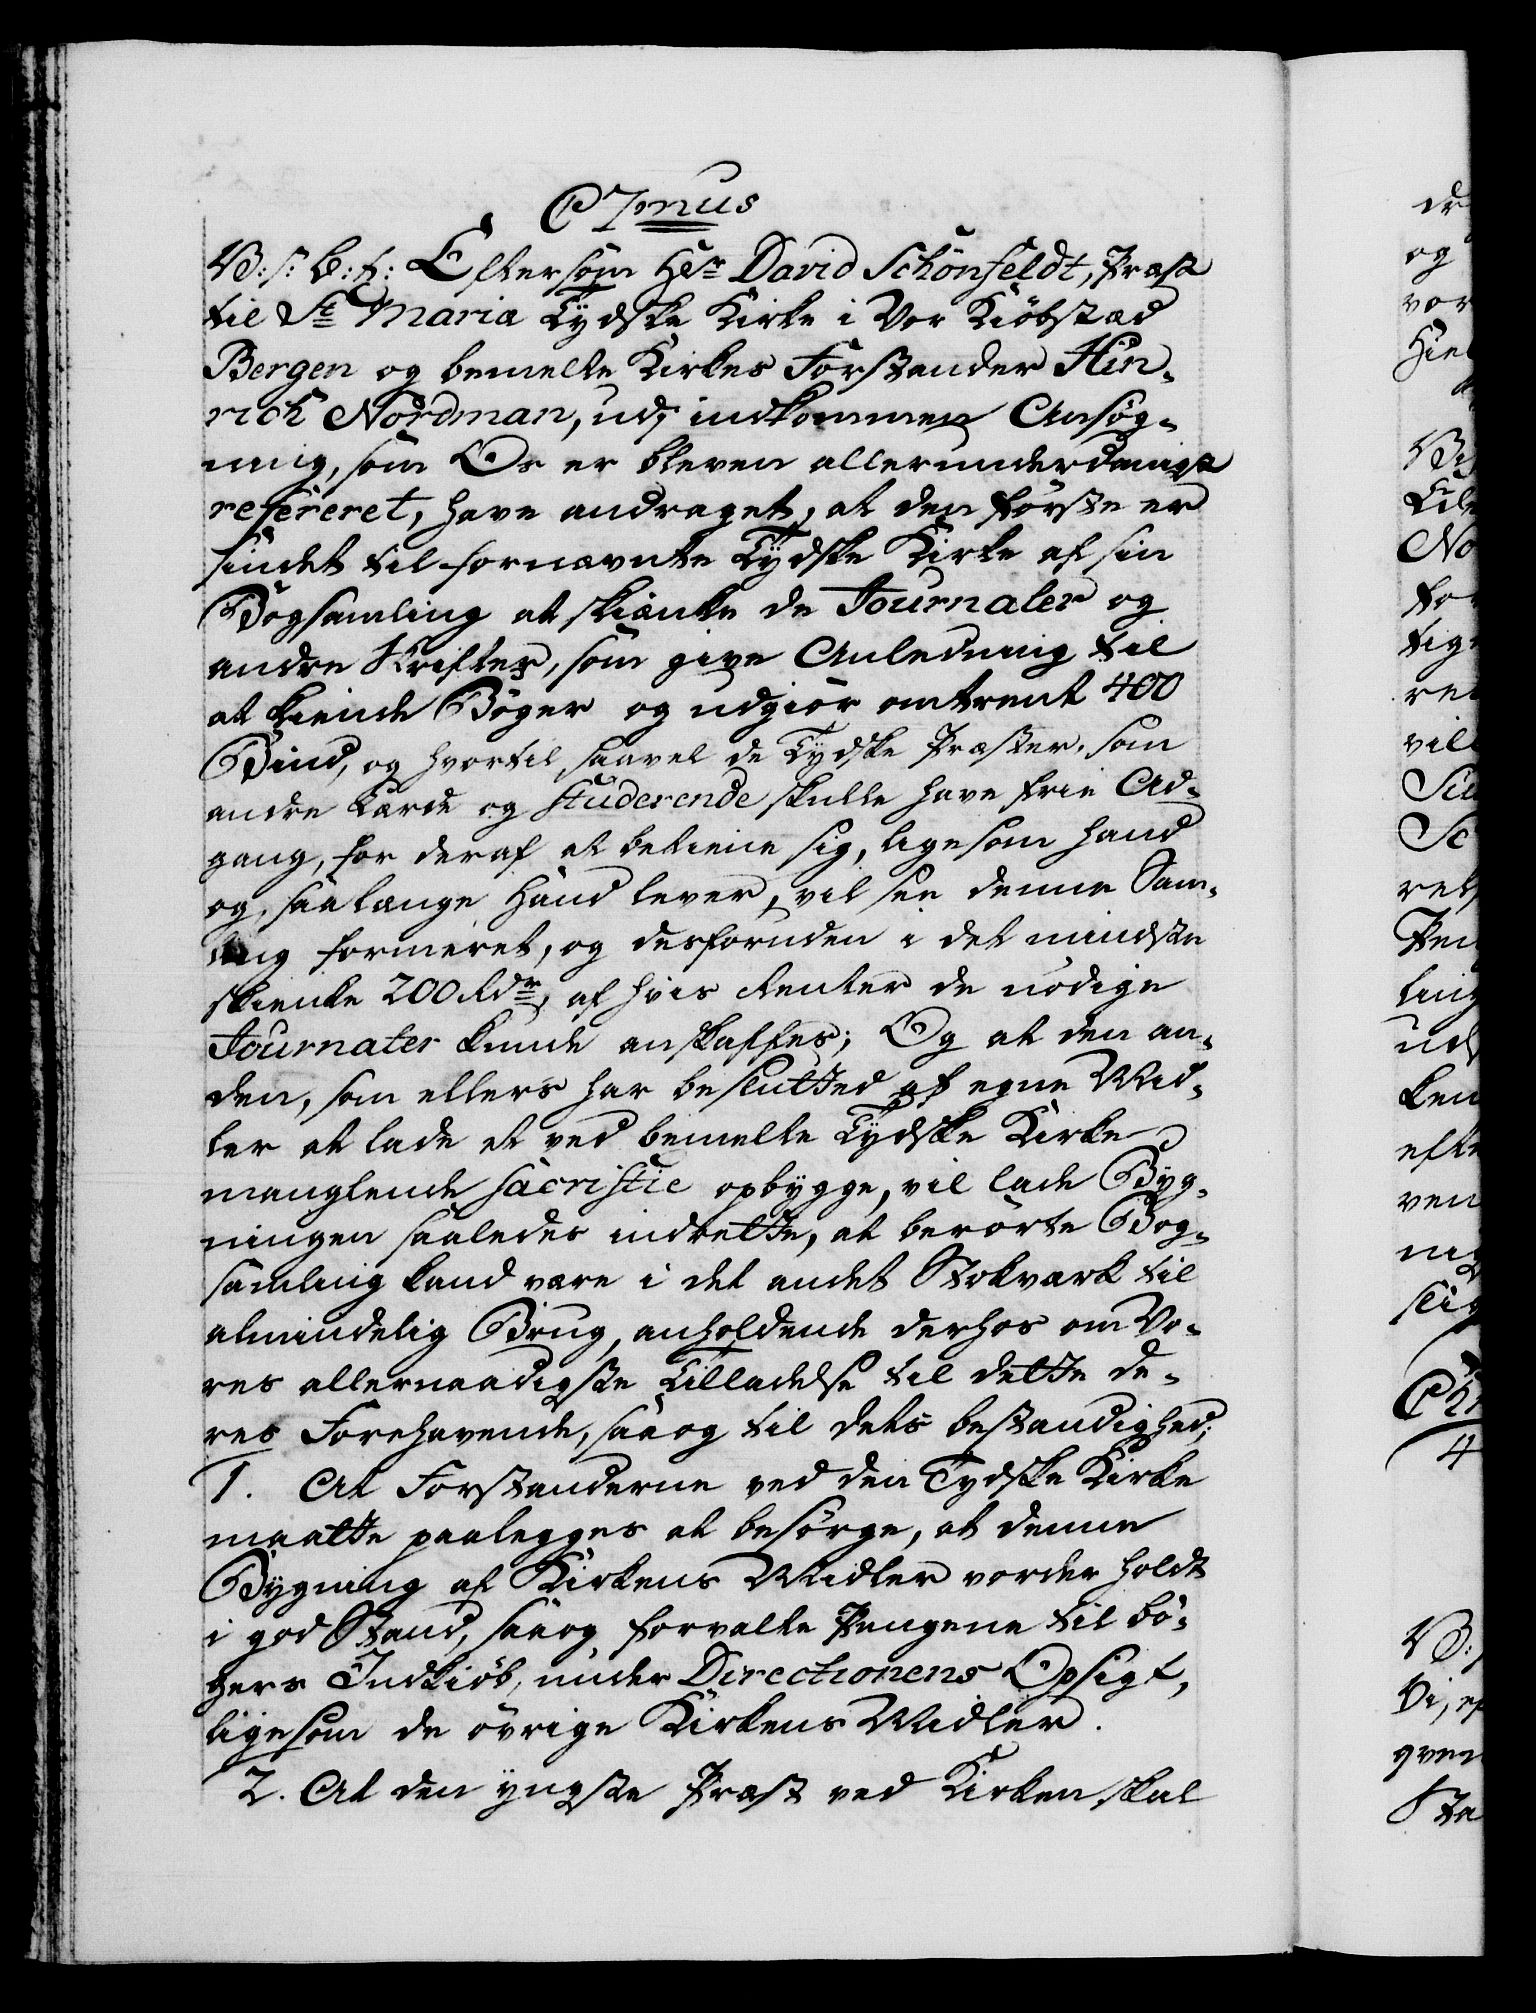 C7mus
V: s: b: t: Eftersom Hr David Schönfeldt, Præst
til St Maria Tydske Kirke i Vor Kiöbstæd
Bergen og bemelte Kirkes Forstander Hin-
rich Nordman, udj indkommen Ansög-
ning, som Os er bleven allerunderdanigst
refereret, have andraget, at den förste er
sindet til fornævnte Tydske Kirke af sin
Bogsamling at skiænke de Journaler og
andre Skrifter, som give Anledning til
at kiende Böger og udgiör omtrent 400
Bind, og hvortil saavel de Tydske Præster, som
andre Lærde og Studerende skulle have frie Ad-
gang, for deraf at betiene sig, ligesom hand
og, saalænge hand lever, vil see denne Sam-
ling formeret, og desforuden i det mindste
skienke 200 Rdr, af hvis Renter de nödige
Journaler kunde anskaffes; Og at den an-
den, som ellers har beslutted af egne Mid-
ler at lade et ved bemelte Tydske Kirke
manglende Sacristie opbygge, vil lade Byg-
ningen saaledes indrette, at berörte Bog-
samling kand være i det andet Stokværk til
almindelig Brug, anholdende derhos om Vo-
res allernaadigste Tilladelse til dette de-
res Forehavende, saa og til dets bestandighed;
1. At Forstanderne ved den Tydske Kirke
maatte paalegges at besörge, at denne
Bygning af Kirkens Midler vorder holdt
i god Stand, saa og forvalte Pengene til Bö-
gers Indkiöb, under Directionens Opsigt,
ligesom de övrige Kirkens Midler.
2. At den yngste Præst ved Kirken skal